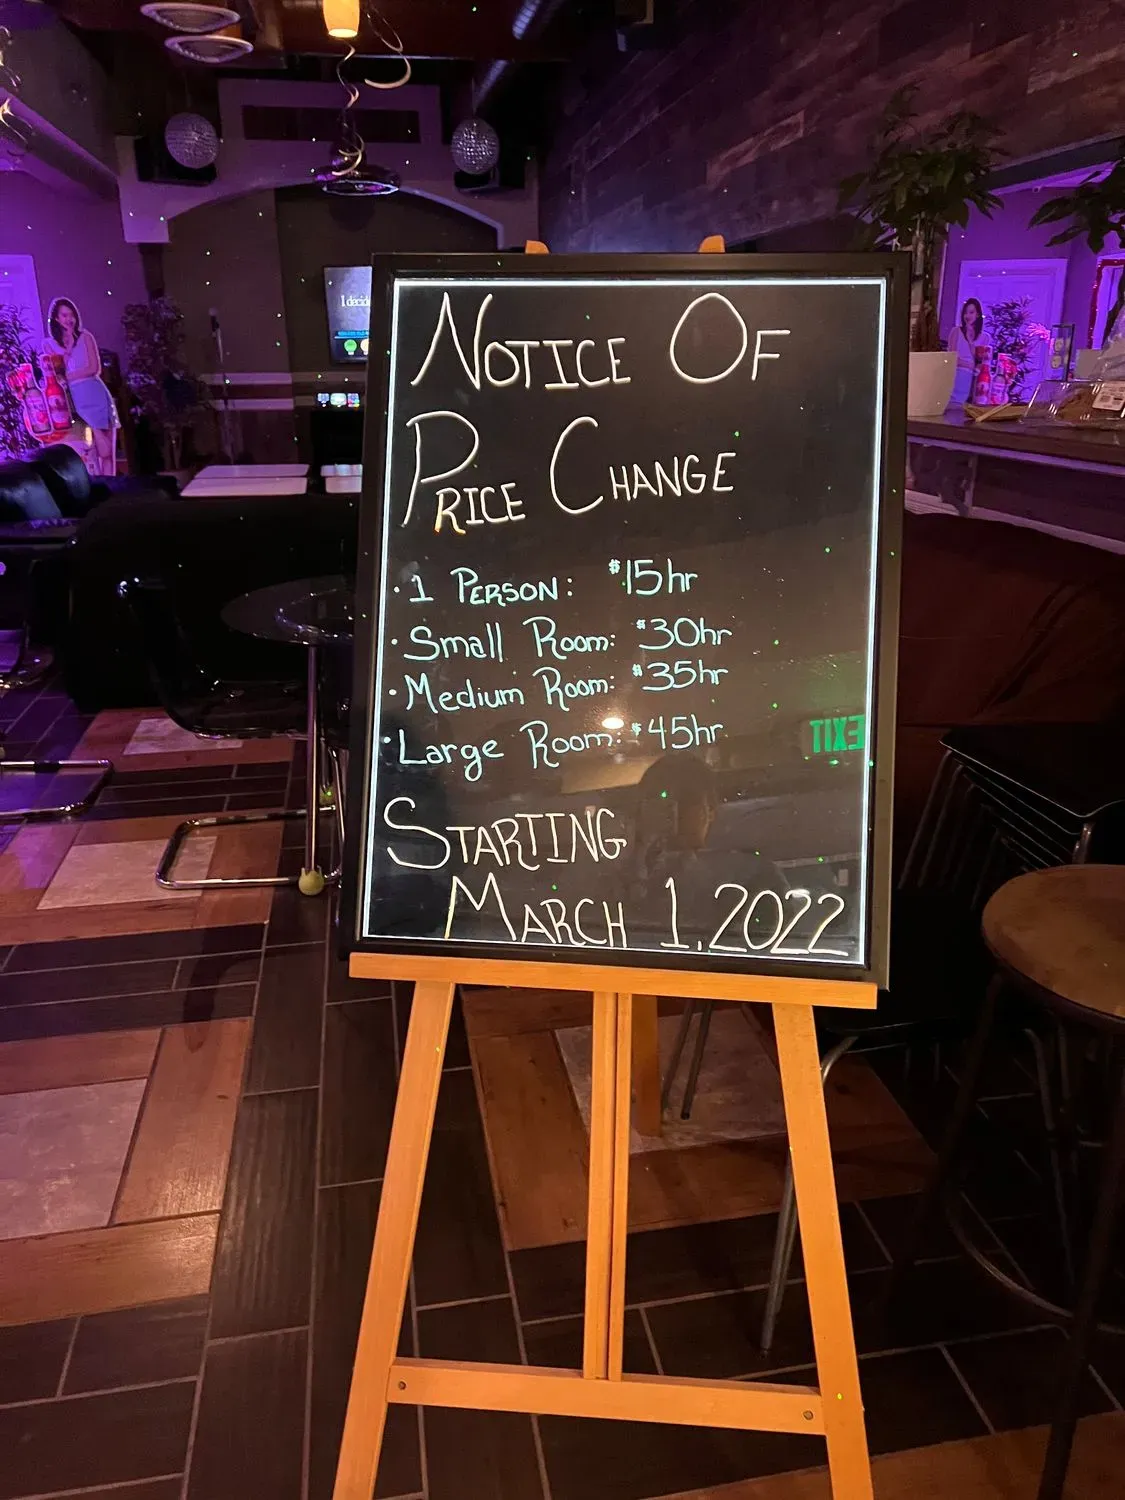 I decide
NOTICE OF
PRICE CHANGE
• 1 PERSON: $15hr
• Small Room: $30hr
• Medium Room: $35hr
• Large Room: $45hr
EXIT
STARTING
MARCH 1, 2022